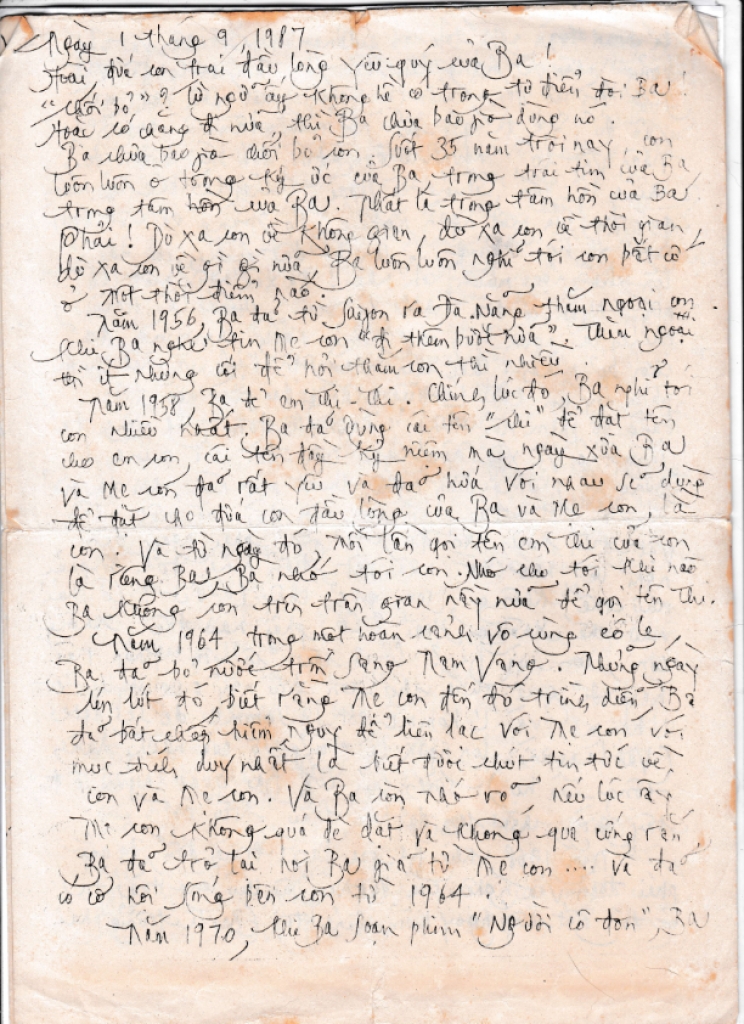 Ngày 1 tháng 9, 1987
Hoài đứa con trai đầu lòng yêu quý của Ba!
"Chối bỏ"? Từ ngữ ấy không hề có trong tự điển đời Ba!
Hoặc có chăng đi nữa, thì Ba chưa bao giờ dùng nó.
Ba chưa bao giờ chối bỏ con. Suốt 35 năm trời nay, con
luôn luôn ở trong ký ức của Ba, trong trái tim của Ba,
trong tâm hồn của Ba. Nhất là trong tâm hồn của Ba.
Phải! Dù xa con về không gian, dù xa con về thời gian,
dù xa con về gì gì nữa, Ba luôn luôn nghĩ tới con bất cứ
ở một thời điểm nào.
Năm 1956, Ba đã từ Saigon ra Đà Nẵng thăm ngoại con
khi Ba nghe tin Mẹ con "đi thêm bước nữa". Thăm ngoại
thì ít nhưng cái để hỏi thăm con thì nhiều.
Năm 1958, Ba đẻ em Thi-Thi. Chính lúc đó, Ba nghĩ tới
con nhiều nhất. Ba đã dùng cái tên "Thi" để đặt tên
cho em con, cái tên đầy kỷ niệm mà ngày xưa Ba
và Mẹ con đã rất yêu và đã hứa với nhau sẽ dùng
để đặt cho đứa con đầu lòng của Ba và Mẹ con, là
con. Và từ ngày đó, mỗi lần gọi tên em Thi của con
là riêng Ba, Ba nhớ tới con. Nhớ cho tới khi nào
Ba không còn trên trần gian này nữa để gọi tên Thi.
Năm 1964 trong một hoàn cảnh vô cùng éo le,
Ba đã bỏ nước trốn sang Nam Vang. Những ngày
lén lút đó, biết rằng Mẹ con đến đó trình diễn, Ba
đã bất chấp hiểm nguy để liên lạc với Mẹ con, với
mục đích duy nhất là biết được chút tin tức về
con và Mẹ con. Và Ba còn nhớ rõ nếu lúc ấy
Mẹ con không quá dè dặt và không quá cứng rắn
Ba đã trở lại nơi Ba giã từ Mẹ con.... và đã
có cơ hội sống bên con từ 1964.
Năm 1970, khi Ba soạn phim "Người cô đơn", Ba